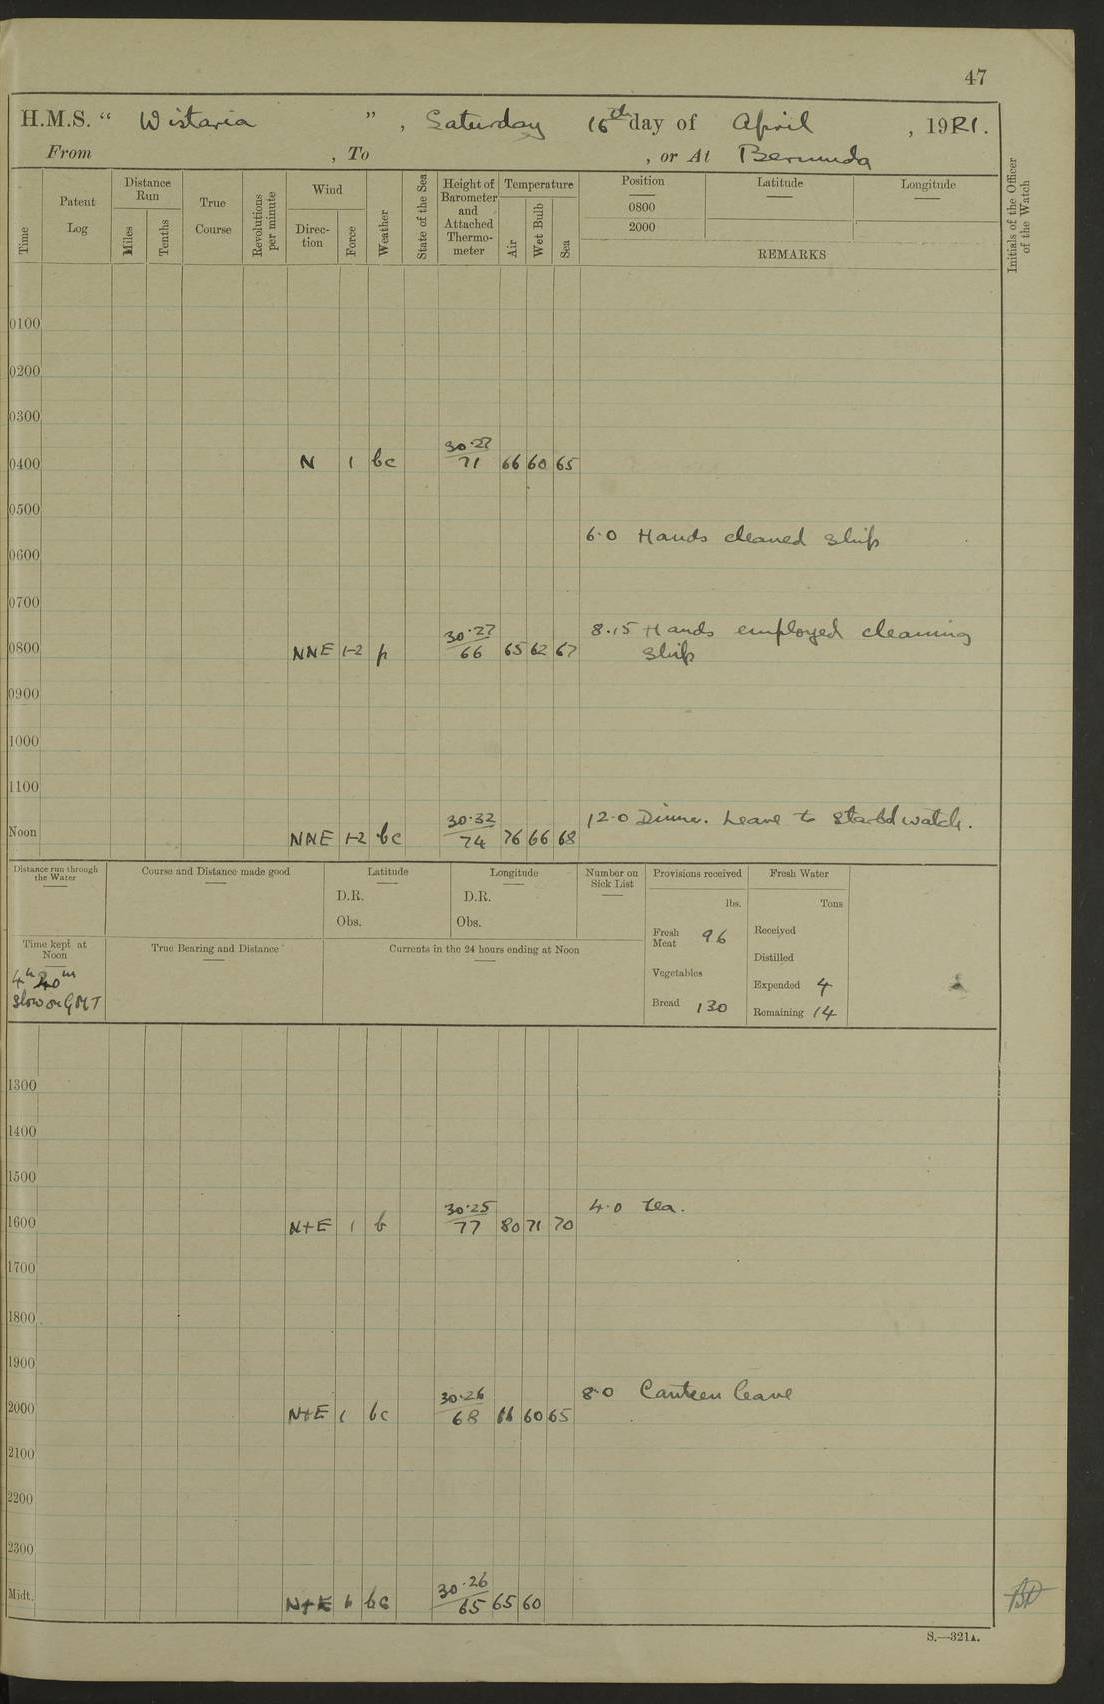 47
H.M.S. “ Wistaria ” , Saturday 16th day of April , 1921.
From , To , or At Bermuda
Time
Patent Log
Distance Run
Miles
Tenths
True Course
Revolutions per minute
Wind
Direc- tion
Force
Weather
State of the Sea
Height of Barometer and Attached Thermo- meter
Temperature
Air
Wet Bulb
Sea
Position
0800
2000
Latitude
Longitude
REMARKS
Initials of the Officer of the Watch
0100
0200
0300
0400 N 1 bc 30·27 71 66 60 65
0500
6·0 Hands cleaned ship
0600
0700
8·15 Hands employed cleaning
ship
0800 NNE 1-2 p 30·27 66 65 62 67
0900
1000
1100
12·0 Dinner. Leave to starbd watch.
Noon NNE 1-2 bc 30·32 74 76 66 68
Distance run through the Water
Course and Distance made good
Latitude
D.R.
Obs.
Longitude
D.R.
Obs.
Number on Sick List
Provisions received
lbs.
Fresh Meat 96
Vegetables
Bread 130
Fresh Water
Tons
Received
Distilled
Expended 4
Remaining 14
Time kept at Noon
4h m
slow on GMT
True Bearing and Distance
Currents in the 24 hours ending at Noon
1300
1400
1500
4·0 Tea.
1600 N+E 1 b 30·25 77 80 71 70
1700
1800
1900
8·0 Canteen leave
2000 N+E 1 bc 30·26 68 66 60 65
2100
2200
2300
Midt. N+E bc 30·26 65 65 60
S.—321A.